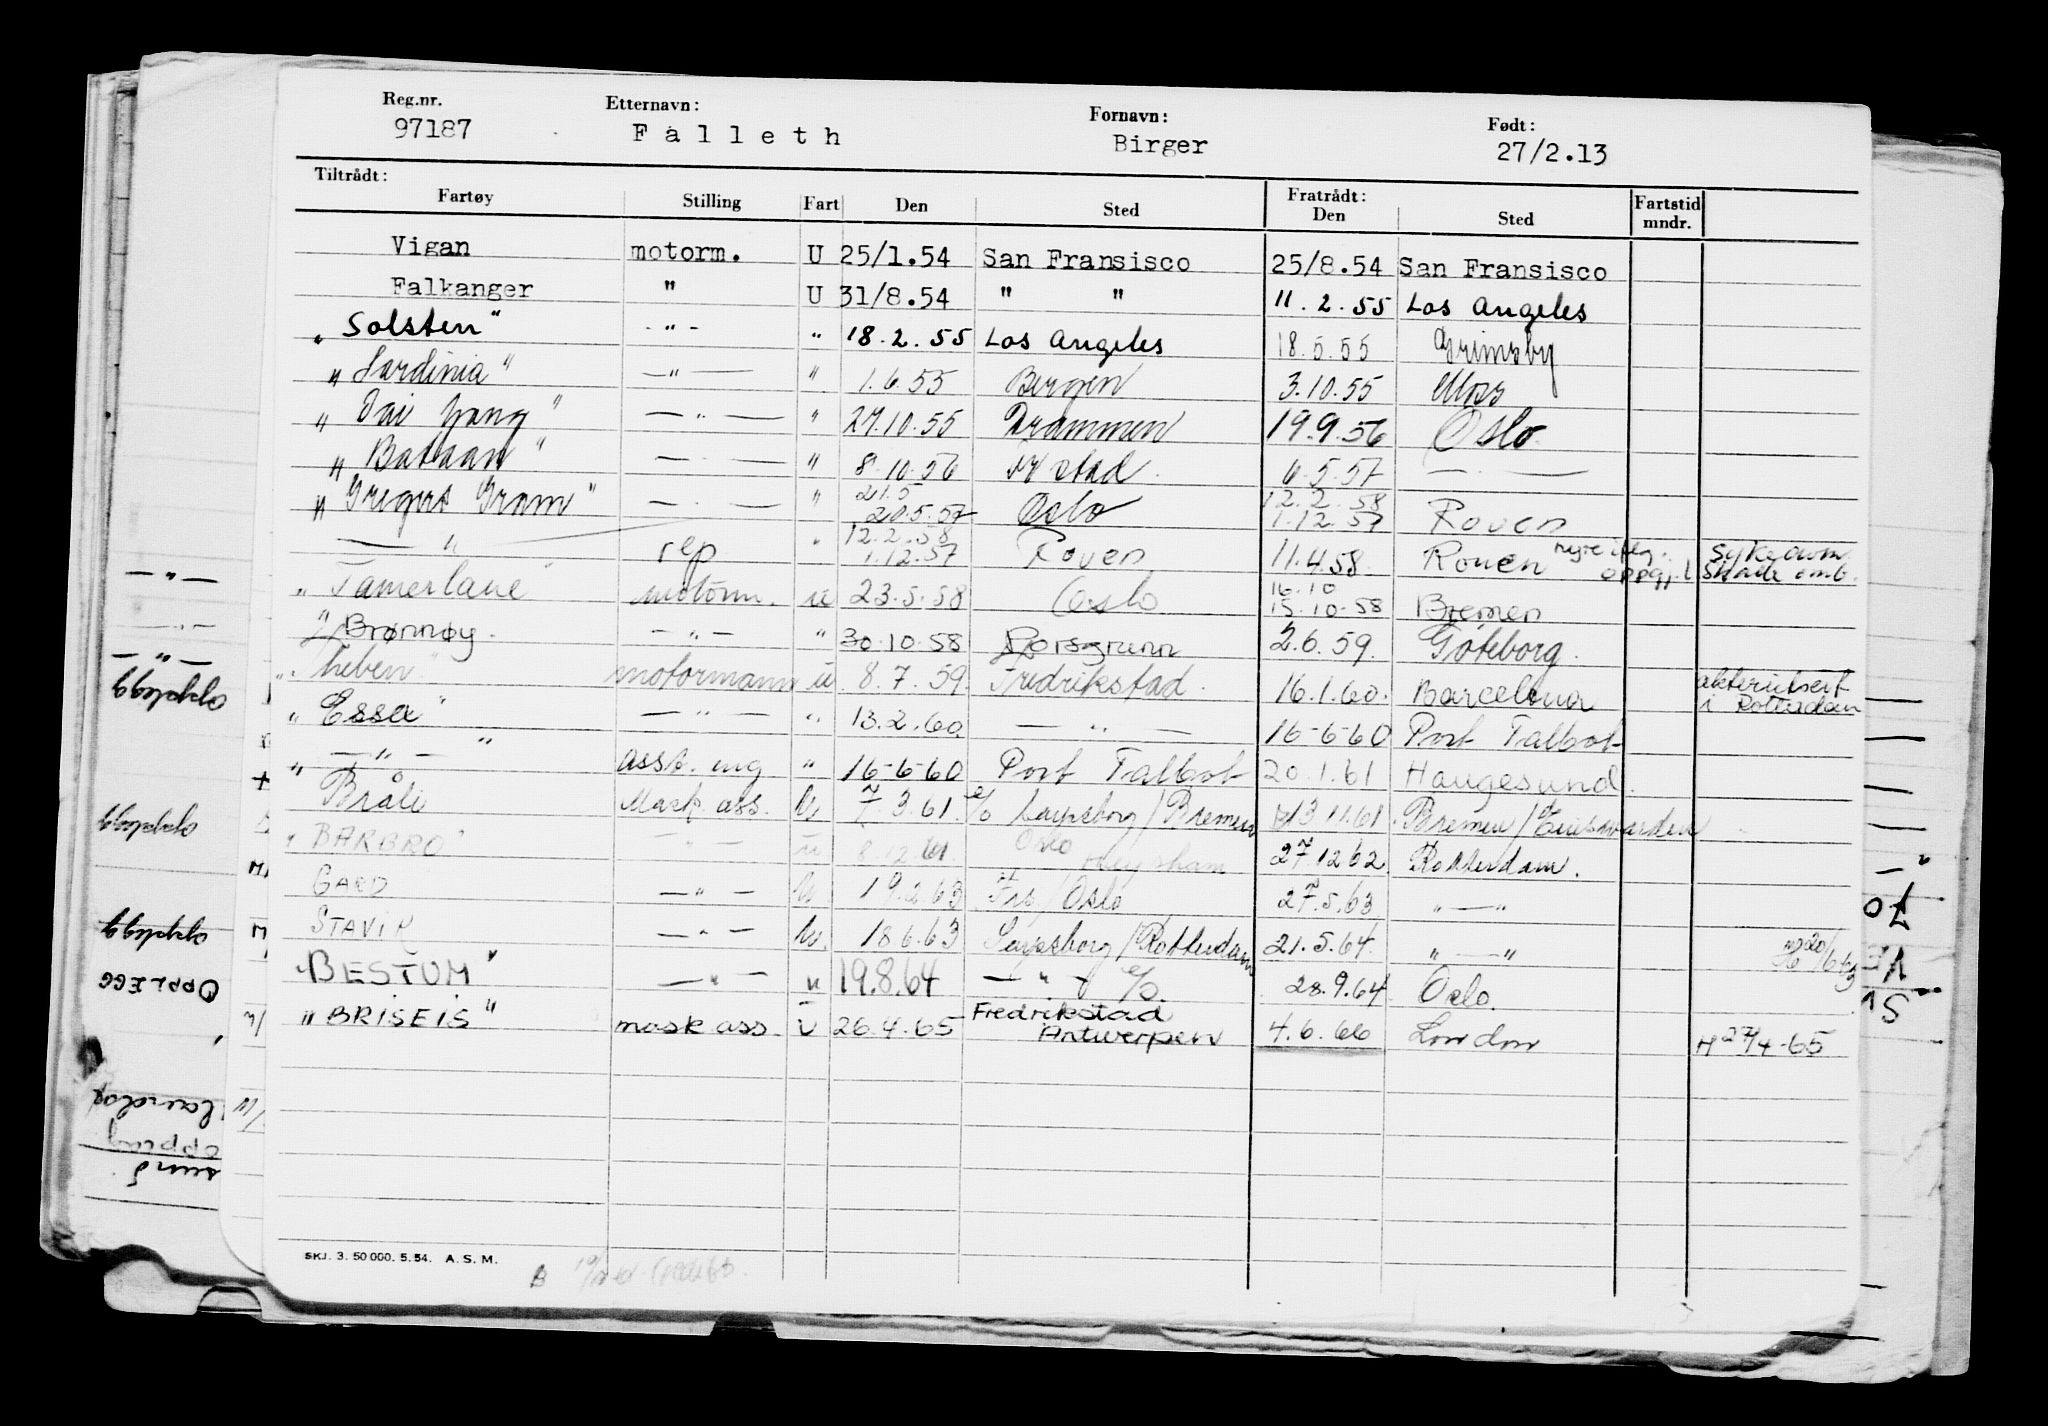 Reg.nr. Etternavn: Fornavn: Født:
97187 Fålleth Birger 27/2.13
Tiltrådt: Fratrådt:
Fartøy Stilling Fart Den Sted Den Sted Fartstid mndr.
Vigan motorm. U 25/1.54 San Fransisco 25/8.54 San Fransisco
Falkanger " U 31/8.54 " " 11.2.55 Los Angeles
"Solsten" -"- " 18.2.55 Los Angeles 18.5.55 Grimsby
"Sardinia" —"— " 1.6.55 Bergen 3.10.55 Moss
"Tai Yang" —"— " 27.10.55 Drammen 19.9.56 Oslo
"Bataan" —"— " 8.10.56 6.5.57 —"—
"Gregers Gram" —"— " 21.5 20.5.57 Oslo 12.2.58 1.12.57 Rouen
—"— rep " 12.2.58 1.12.57 Rouen 11.4.58 Rouen
"Tamerlane" motorm. u 23.5.58 Oslo 16.10 15.10.58 Bremen
"Brønnøy -"- " 30.10.58 Porsgrunn 2.6.59. Göteborg.
"Heben" motormann u 8.7.59. Fredrikstad. 16.1.60. Barcelona akterutseilt i Rotterdam
"Essa" —"— " 13.2.60. —"— 16-6-60 Port Talbot
"—"—" asst. ing " 16-6-60 Port Talbot 20.1.61 Haugesund.
Bråli Mask. ass. U 7.3.61. Sarpsborg/Bremen 13.11.61. Bremen/Einswarden
"BARBRO" -"- u 8.12.61. Oslo Heysham 27.12.62. Rotterdam.
GARD —"— U 19.2.63 Oslo 27.5.63 "—"
STAVIK —"— U. 18.6.63 Sarpsborg/Rotterdam 21.5.64. "—" 20/6 63
"BESTUM" —"— u 19.8.64 —"— 28.9.64 Oslo.
"BRISEIS" mask ass. U 26.4.65 Fredrikstad Antwerpen 4.6.66 London H 27/4-65
SKJ. 3. 50 000. 5. 54. A. S. M.
OPPLEGG